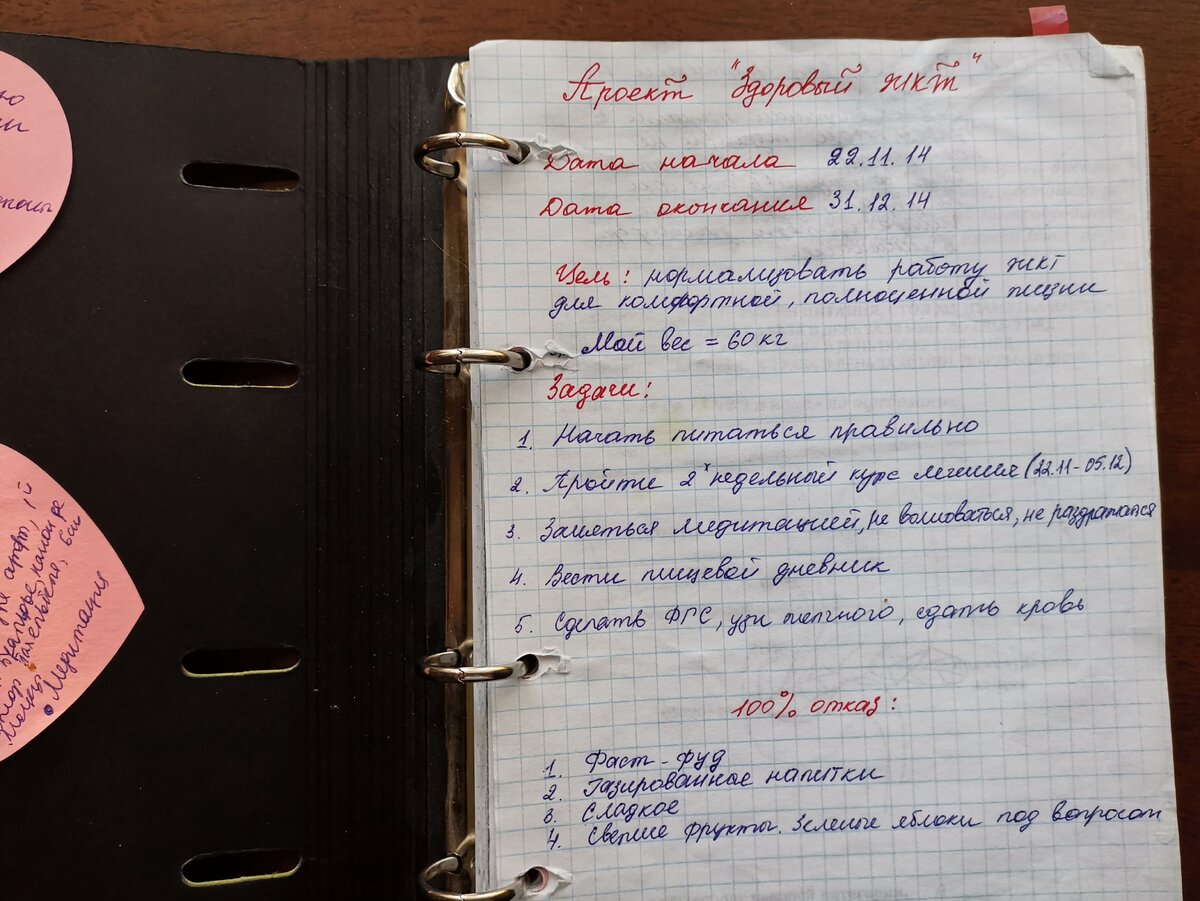 Проект "Здоровый ЖКТ"
Дата начала 22.11.14
Дата окончания 31.12.14
Цель: нормализовать работу ЖКТ
для комфортной, полноценной жизни
Мой вес = 60 кг
Задачи:
1. Начать питаться правильно
2. Пройти 2х недельный курс лечения (22.11-05.12)
3. Заняться медитацией, не волноваться, не раздражаться
4. Вести пищевой дневник
5. Сделать ФГС, узи желчного, сдать кровь
100% отказ:
1. Фаст-фуд
2. Газированные напитки
3. Сладкое
4. Свежие фрукты. Зеленые яблоки под вопросом
• Медитация